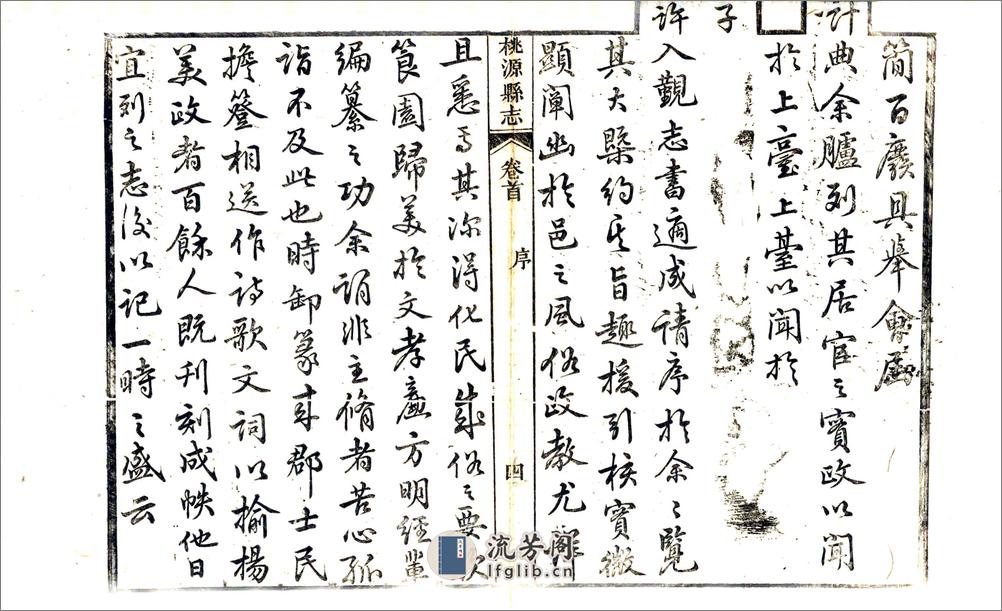 簡百廢具舉會届
計典余臚列其居官之實政以聞
於上臺上臺以聞於
子
許入覲志書適成請序於余之覽
其大槩約其旨趣援引核實微
顯闡幽於邑之風俗政教尤詳
桃源縣志 卷首 序 四
且悉焉其深得化民成俗之要歟
食園歸美於文孝廉方明經輩
編纂之功余謂非主脩者苦心孤
詣不及此也時卸篆來郡士民
擔簦相送作詩歌文詞以揄揚
美政者百餘人既刊刻成帙他日
宜列之志後以記一時之盛云
流芳閣
lfglib.cn